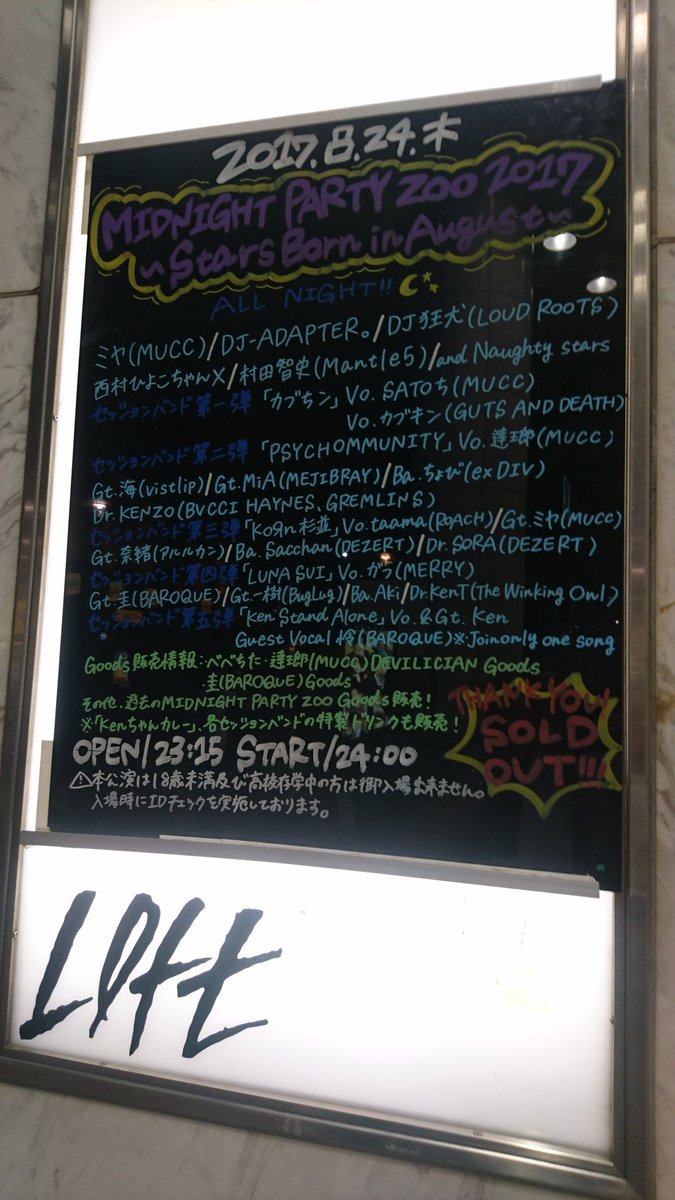 2017.8.24.木
MIDNIGHT PARTY ZOO 2017
~Stars Born in August~
ALL NIGHT!!
ミヤ(MUCC)/DJ-ADAPTER。/DJ狂犬(LOUD ROOTS)
西村ひよこちゃんX/村田智史(Mantle5)/and Naughty stars
セッションバンド第一弾「カブちン」Vo. SATOち(MUCC)
Vo. カブキン(GUTS AND DEATH)
セッションバンド第二弾「PSYCHOMMUNITY」Vo. 逹瑯(MUCC)
Gt. 海(vistlip)/Gt. MiA(MEJIBRAY)/Ba. ちょび(ex DIV)
Dr. KENZO(BVCCI HAYNES、GREMLINS)
セッションバンド第三弾「KoЯn 杉並」Vo. taama(ROACH)/Gt. ミヤ(MUCC)
Gt. 奈緒(アルルカン)/Ba. Sacchan(DEZERT)/Dr. SORA(DEZERT)
セッションバンド第四弾「LUNA SUI」Vo. ガラ(MERRY)
Gt. 圭(BAROQUE)/Gt. 一樹(BugLug)/Ba. Aki/Dr. KenT(The Winking Owl)
セッションバンド第五弾「Ken Stand Alone」Vo. & Gt. Ken
Guest Vocal 怜(BAROQUE)※Join only one song
Goods販売情報:べべちた・逹瑯(MUCC)DEVILICIAN Goods
圭(BAROQUE)Goods
その他、過去のMIDNIGHT PARTY ZOO Goods販売!
※「Kenちゃんカレー」、各セッションバンドの特製ドリンクも販売!
THANK YOU!
SOLD
OUT!!!
OPEN/23:15 START/24:00
⚠本公演は18歳未満及び高校在学中の方は御入場出来ません。
入場時にIDチェックを実施しております。
LOFt